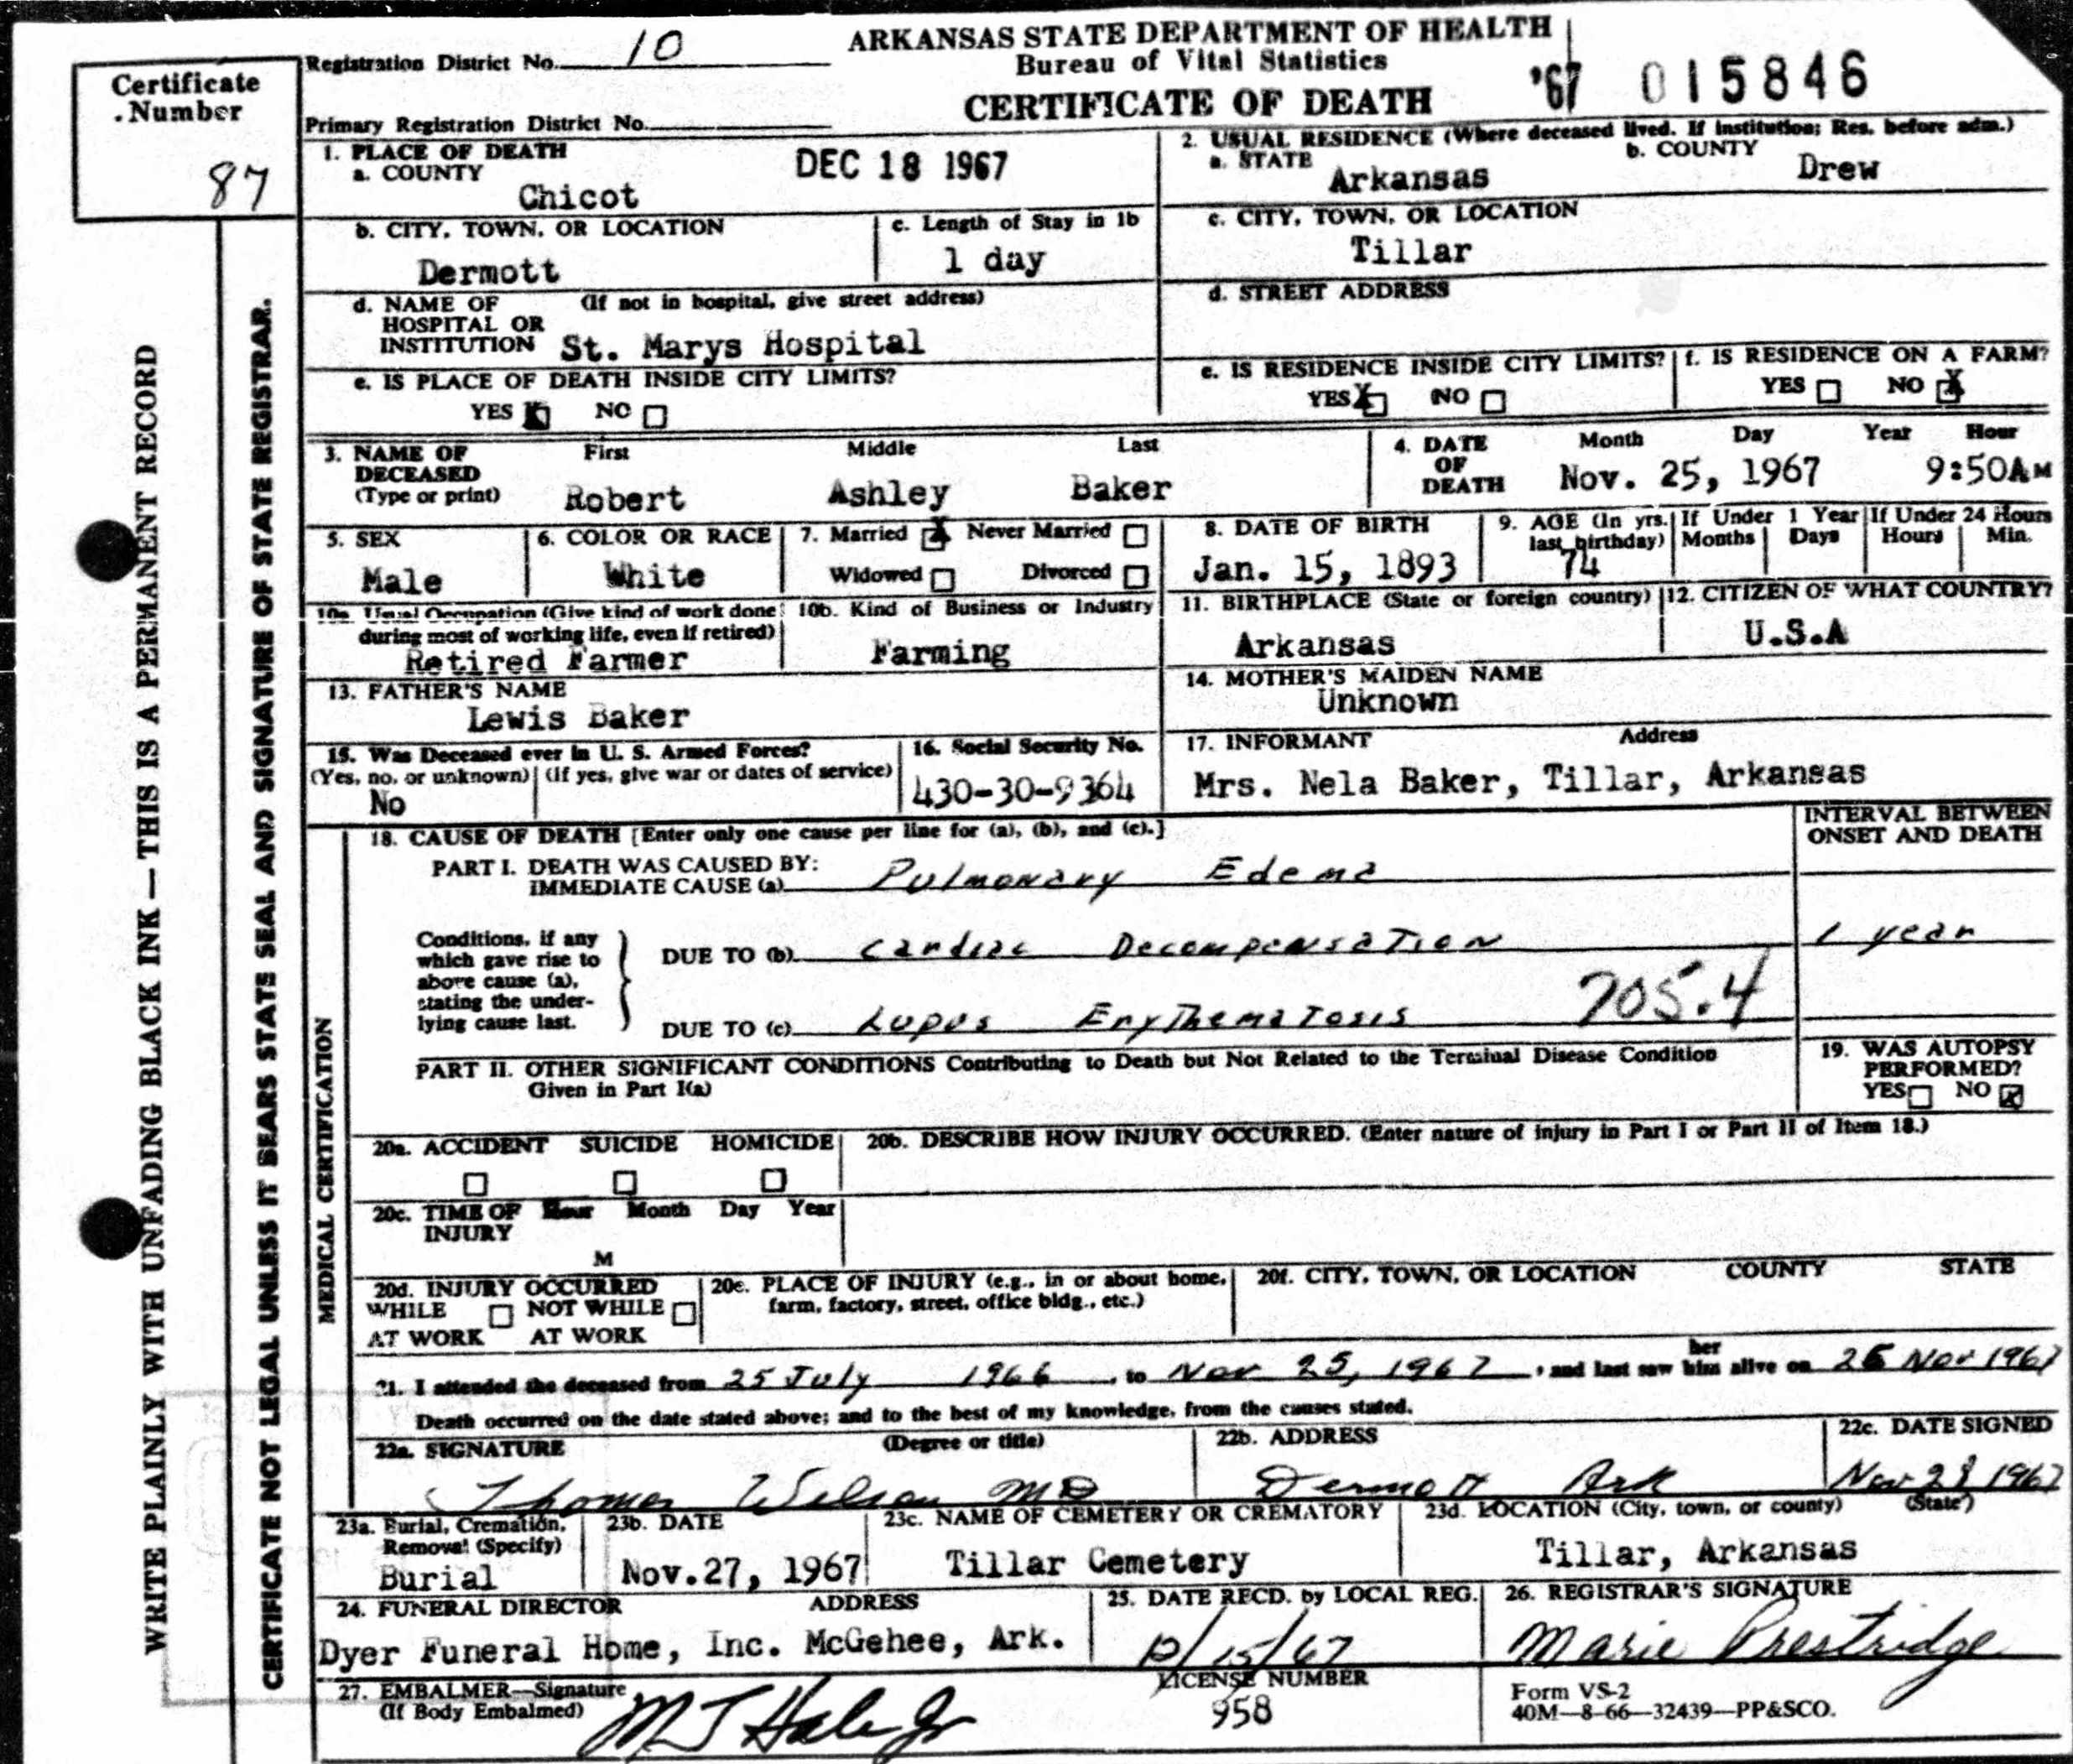 ARKANSAS STATE DEPARTMENT OF HEALTH
Bureau of Vital Statistics
CERTIFICATE OF DEATH
'67 015846
Certificate
Number
87
Registration District No. 10
Primary Registration District No.
DEC 18 1967
1. PLACE OF DEATH
a. COUNTY
Chicot
2. USUAL RESIDENCE (Where deceased lived. If institution; Res. before adm.)
a. STATE Arkansas b. COUNTY Drew
b. CITY, TOWN, OR LOCATION
Dermott
c. Length of Stay in 1b
1 day
c. CITY, TOWN, OR LOCATION
Tillar
d. NAME OF (If not in hospital, give street address)
HOSPITAL OR
INSTITUTION St. Marys Hospital
d. STREET ADDRESS
e. IS PLACE OF DEATH INSIDE CITY LIMITS?
YES X NO
e. IS RESIDENCE INSIDE CITY LIMITS?
YES X NO
f. IS RESIDENCE ON A FARM?
YES NO X
3. NAME OF DECEASED
(Type or print)
First Middle Last
Robert Ashley Baker
4. DATE OF DEATH
Month Day Year Hour
Nov. 25, 1967 9:50AM
5. SEX
Male
6. COLOR OR RACE
White
7. Married X Never Married
Widowed Divorced
8. DATE OF BIRTH
Jan. 15, 1893
9. AGE (In yrs. last birthday)
74
If Under 1 Year
Months Days
If Under 24 Hours
Hours Min.
10a. Usual Occupation (Give kind of work done
during most of working life, even if retired)
Retired Farmer
10b. Kind of Business or Industry
Farming
11. BIRTHPLACE (State or foreign country)
Arkansas
12. CITIZEN OF WHAT COUNTRY?
U.S.A
13. FATHER'S NAME
Lewis Baker
14. MOTHER'S MAIDEN NAME
Unknown
15. Was Deceased ever in U. S. Armed Forces?
(Yes, no, or unknown) (If yes, give war or dates of service)
No
16. Social Security No.
430-30-9364
17. INFORMANT Address
Mrs. Nela Baker, Tillar, Arkansas
MEDICAL CERTIFICATION
18. CAUSE OF DEATH [Enter only one cause per line for (a), (b), and (c).]
INTERVAL BETWEEN
ONSET AND DEATH
PART I. DEATH WAS CAUSED BY:
IMMEDIATE CAUSE (a) Pulmonary Edema
Conditions, if any
which gave rise to
above cause (a),
stating the under-
lying cause last.
DUE TO (b) Cardiac Decompensation 1 year
705.4
DUE TO (c) Lupus Erythematosis
PART II. OTHER SIGNIFICANT CONDITIONS Contributing to Death but Not Related to the Terminal Disease Condition
Given in Part I(a)
19. WAS AUTOPSY
PERFORMED?
YES NO X
20a. ACCIDENT SUICIDE HOMICIDE
20b. DESCRIBE HOW INJURY OCCURRED. (Enter nature of injury in Part I or Part II of Item 18.)
20c. TIME OF INJURY
Hour Month Day Year
M
20d. INJURY OCCURRED
WHILE NOT WHILE
AT WORK AT WORK
20e. PLACE OF INJURY (e.g., in or about home,
farm, factory, street, office bldg., etc.)
20f. CITY, TOWN, OR LOCATION COUNTY STATE
her
21. I attended the deceased from 25 July 1966, to Nov 25, 1967, and last saw him alive on 25 Nov 1967
Death occurred on the date stated above; and to the best of my knowledge, from the causes stated.
22a. SIGNATURE (Degree or title)
Thomas Wilson MD
22b. ADDRESS
Dermott Ark
22c. DATE SIGNED
Nov 28 1967
23a. Burial, Cremation,
Removal (Specify)
Burial
23b. DATE
Nov.27, 1967
23c. NAME OF CEMETERY OR CREMATORY
Tillar Cemetery
23d. LOCATION (City, town, or county) (State)
Tillar, Arkansas
24. FUNERAL DIRECTOR ADDRESS
Dyer Funeral Home, Inc. McGehee, Ark.
25. DATE RECD. by LOCAL REG.
12/15/67
26. REGISTRAR'S SIGNATURE
Marie Prestridge
27. EMBALMER—Signature
(If Body Embalmed)
LICENSE NUMBER
958
Form VS-2
40M—8-66—32439—PP&SCO.
WRITE PLAINLY WITH UNFADING BLACK INK—THIS IS A PERMANENT RECORD
CERTIFICATE NOT LEGAL UNLESS IT BEARS STATE SEAL AND SIGNATURE OF STATE REGISTRAR.